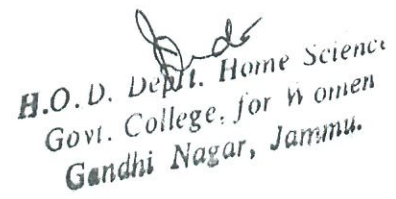 H.O.D. Deptt. Home Science
Govt. College, for Women
Gandhi Nagar, Jammu.